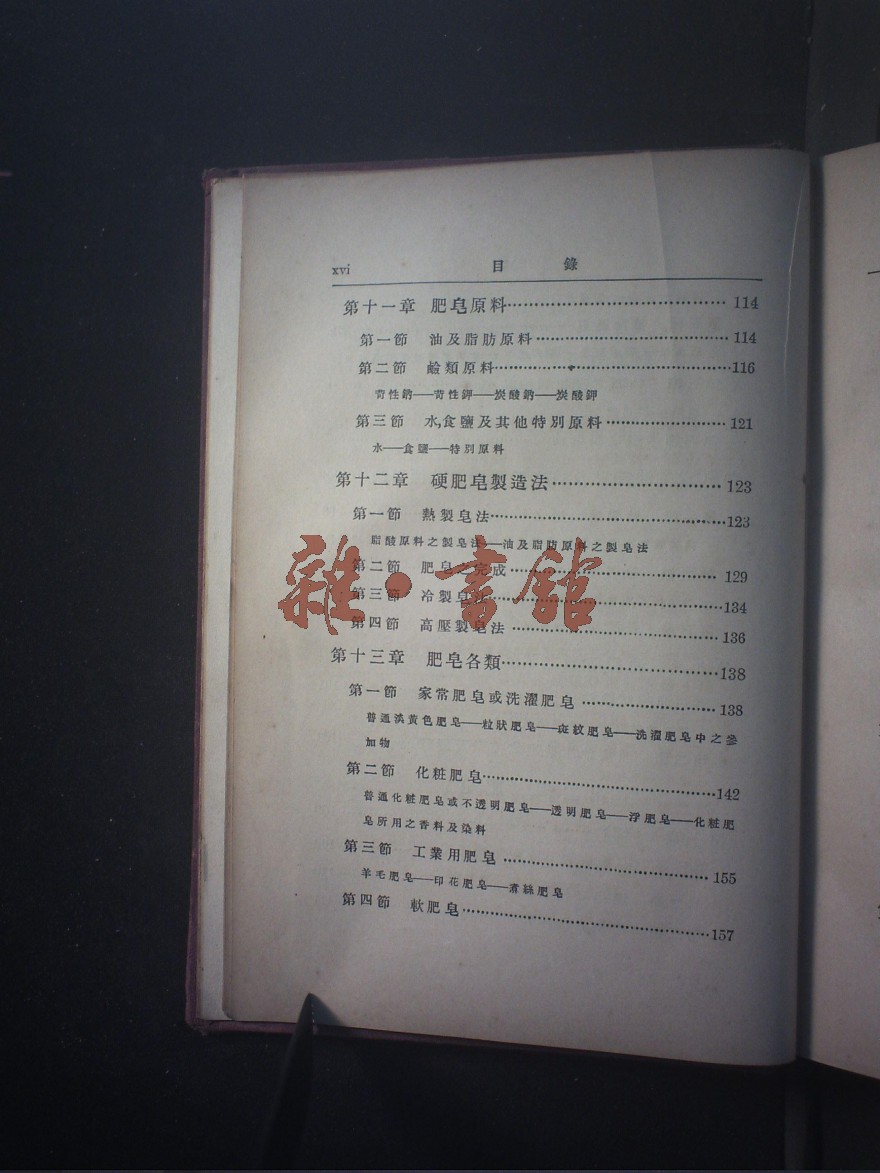 xvi 目錄
第十一章 肥皂原料……114
第一節 油及脂肪原料……114
第二節 鹼類原料……116
苛性鈉——苛性鉀——炭酸鈉——炭酸鉀
第三節 水,食鹽及其他特別原料……121
水——食鹽——特別原料
第十二章 硬肥皂製造法……123
第一節 熱製皂法……123
脂酸原料之製皂法——油及脂肪原料之製皂法
第二節 肥皂之完成……129
第三節 冷製皂法……134
第四節 高壓製皂法……136
第十三章 肥皂各類……138
第一節 家常肥皂或洗濯肥皂……138
普通淡黃色肥皂——粒狀肥皂——斑紋肥皂——洗濯肥皂中之參
加物
第二節 化粧肥皂……142
普通化粧肥皂或不透明肥皂——透明肥皂——浮肥皂——化粧肥
皂所用之香料及染料
第三節 工業用肥皂……155
羊毛肥皂——印花肥皂——煮絲肥皂
第四節 軟肥皂……157
雜·書館